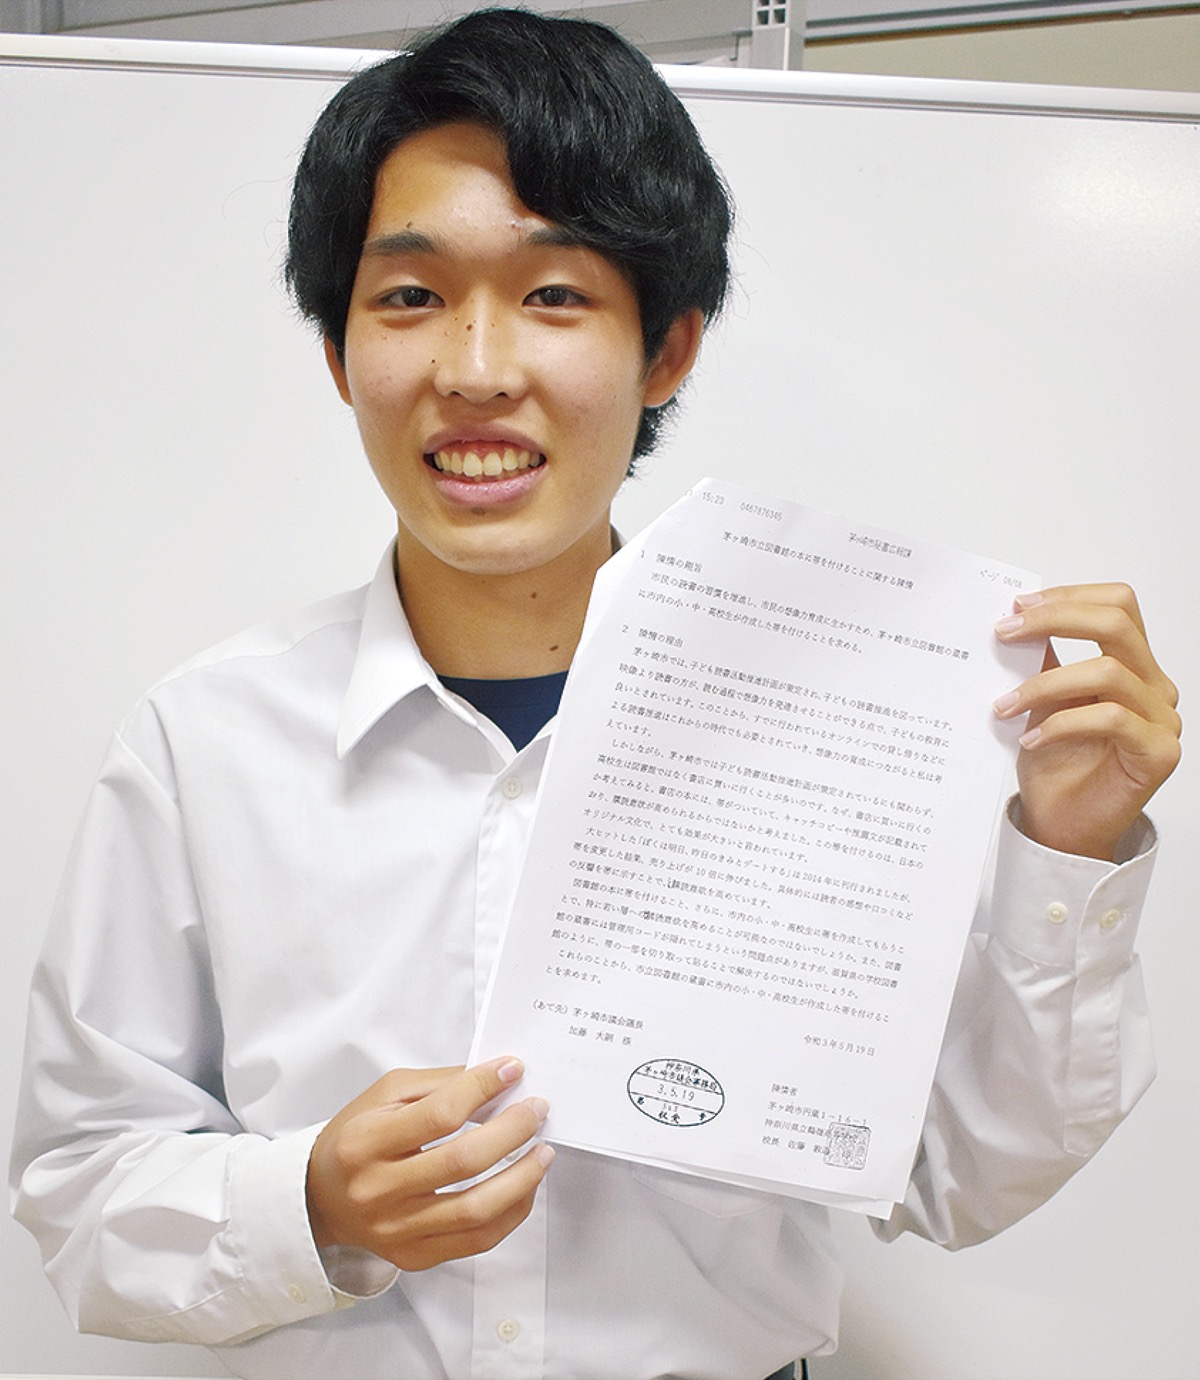 15:23 0467876345 茅ヶ崎市秘書広報課 ページ 08/08
茅ヶ崎市立図書館の本に帯を付けることに関する陳情
1 陳情の趣旨
市民の読書の習慣を増進し、市民の想像力育成に生かすため、茅ヶ崎市立図書館の蔵書
に市内の小・中・高校生が作成した帯を付けることを求める。
2 陳情の理由
茅ヶ崎市では、子ども読書活動推進計画が策定され、子どもの読書推進を図っています。
映像より読書の方が、読む過程で想像力を発達させることができる点で、子どもの教育に
良いとされています。このことから、すでに行われているオンラインでの貸し借りなどに
よる読書推進はこれからの時代でも必要とされていき、想像力の育成につながると私は考
えています。
しかしながら、茅ヶ崎市では子ども読書活動推進計画が策定されているにも関わらず、
高校生は図書館ではなく書店に買いに行くことが多いのです。なぜ、書店に買いに行くの
か考えてみると、書店の本には、帯がついていて、キャッチコピーや推薦文が記載されて
おり、購読意欲が高められるからではないかと考えました。この帯を付けるのは、日本の
オリジナル文化で、とても効果が大きいと言われています。
大ヒットした「ぼくは明日、昨日のきみとデートする」は2014年に刊行されましたが、
帯を変更した結果、売り上げが10倍に伸びました。具体的には読者の感想や口コミなど
の反響を帯に示すことで、購読意欲を高めています。
図書館の本に帯を付けること、さらに、市内の小・中・高校生に帯を作成してもらうこ
とで、特に若い層への購読意欲を高めることが可能なのではないでしょうか。また、図書
館の蔵書には管理用コードが隠れてしまうという問題点がありますが、滋賀県の学校図書
館のように、帯の一部を切り取って貼ることで解決するのではないでしょうか。
これらのことから、市立図書館の蔵書に市内の小・中・高校生が作成した帯を付けるこ
とを求めます。
令和3年5月19日
(あて先) 茅ヶ崎市議会議長
加藤 大嗣 様
神奈川県
茅ヶ崎市議会事務局
3.5.19
収受
陳情者
茅ヶ崎市円蔵1-16-1
神奈川県立鶴嶺高等
校長 佐藤